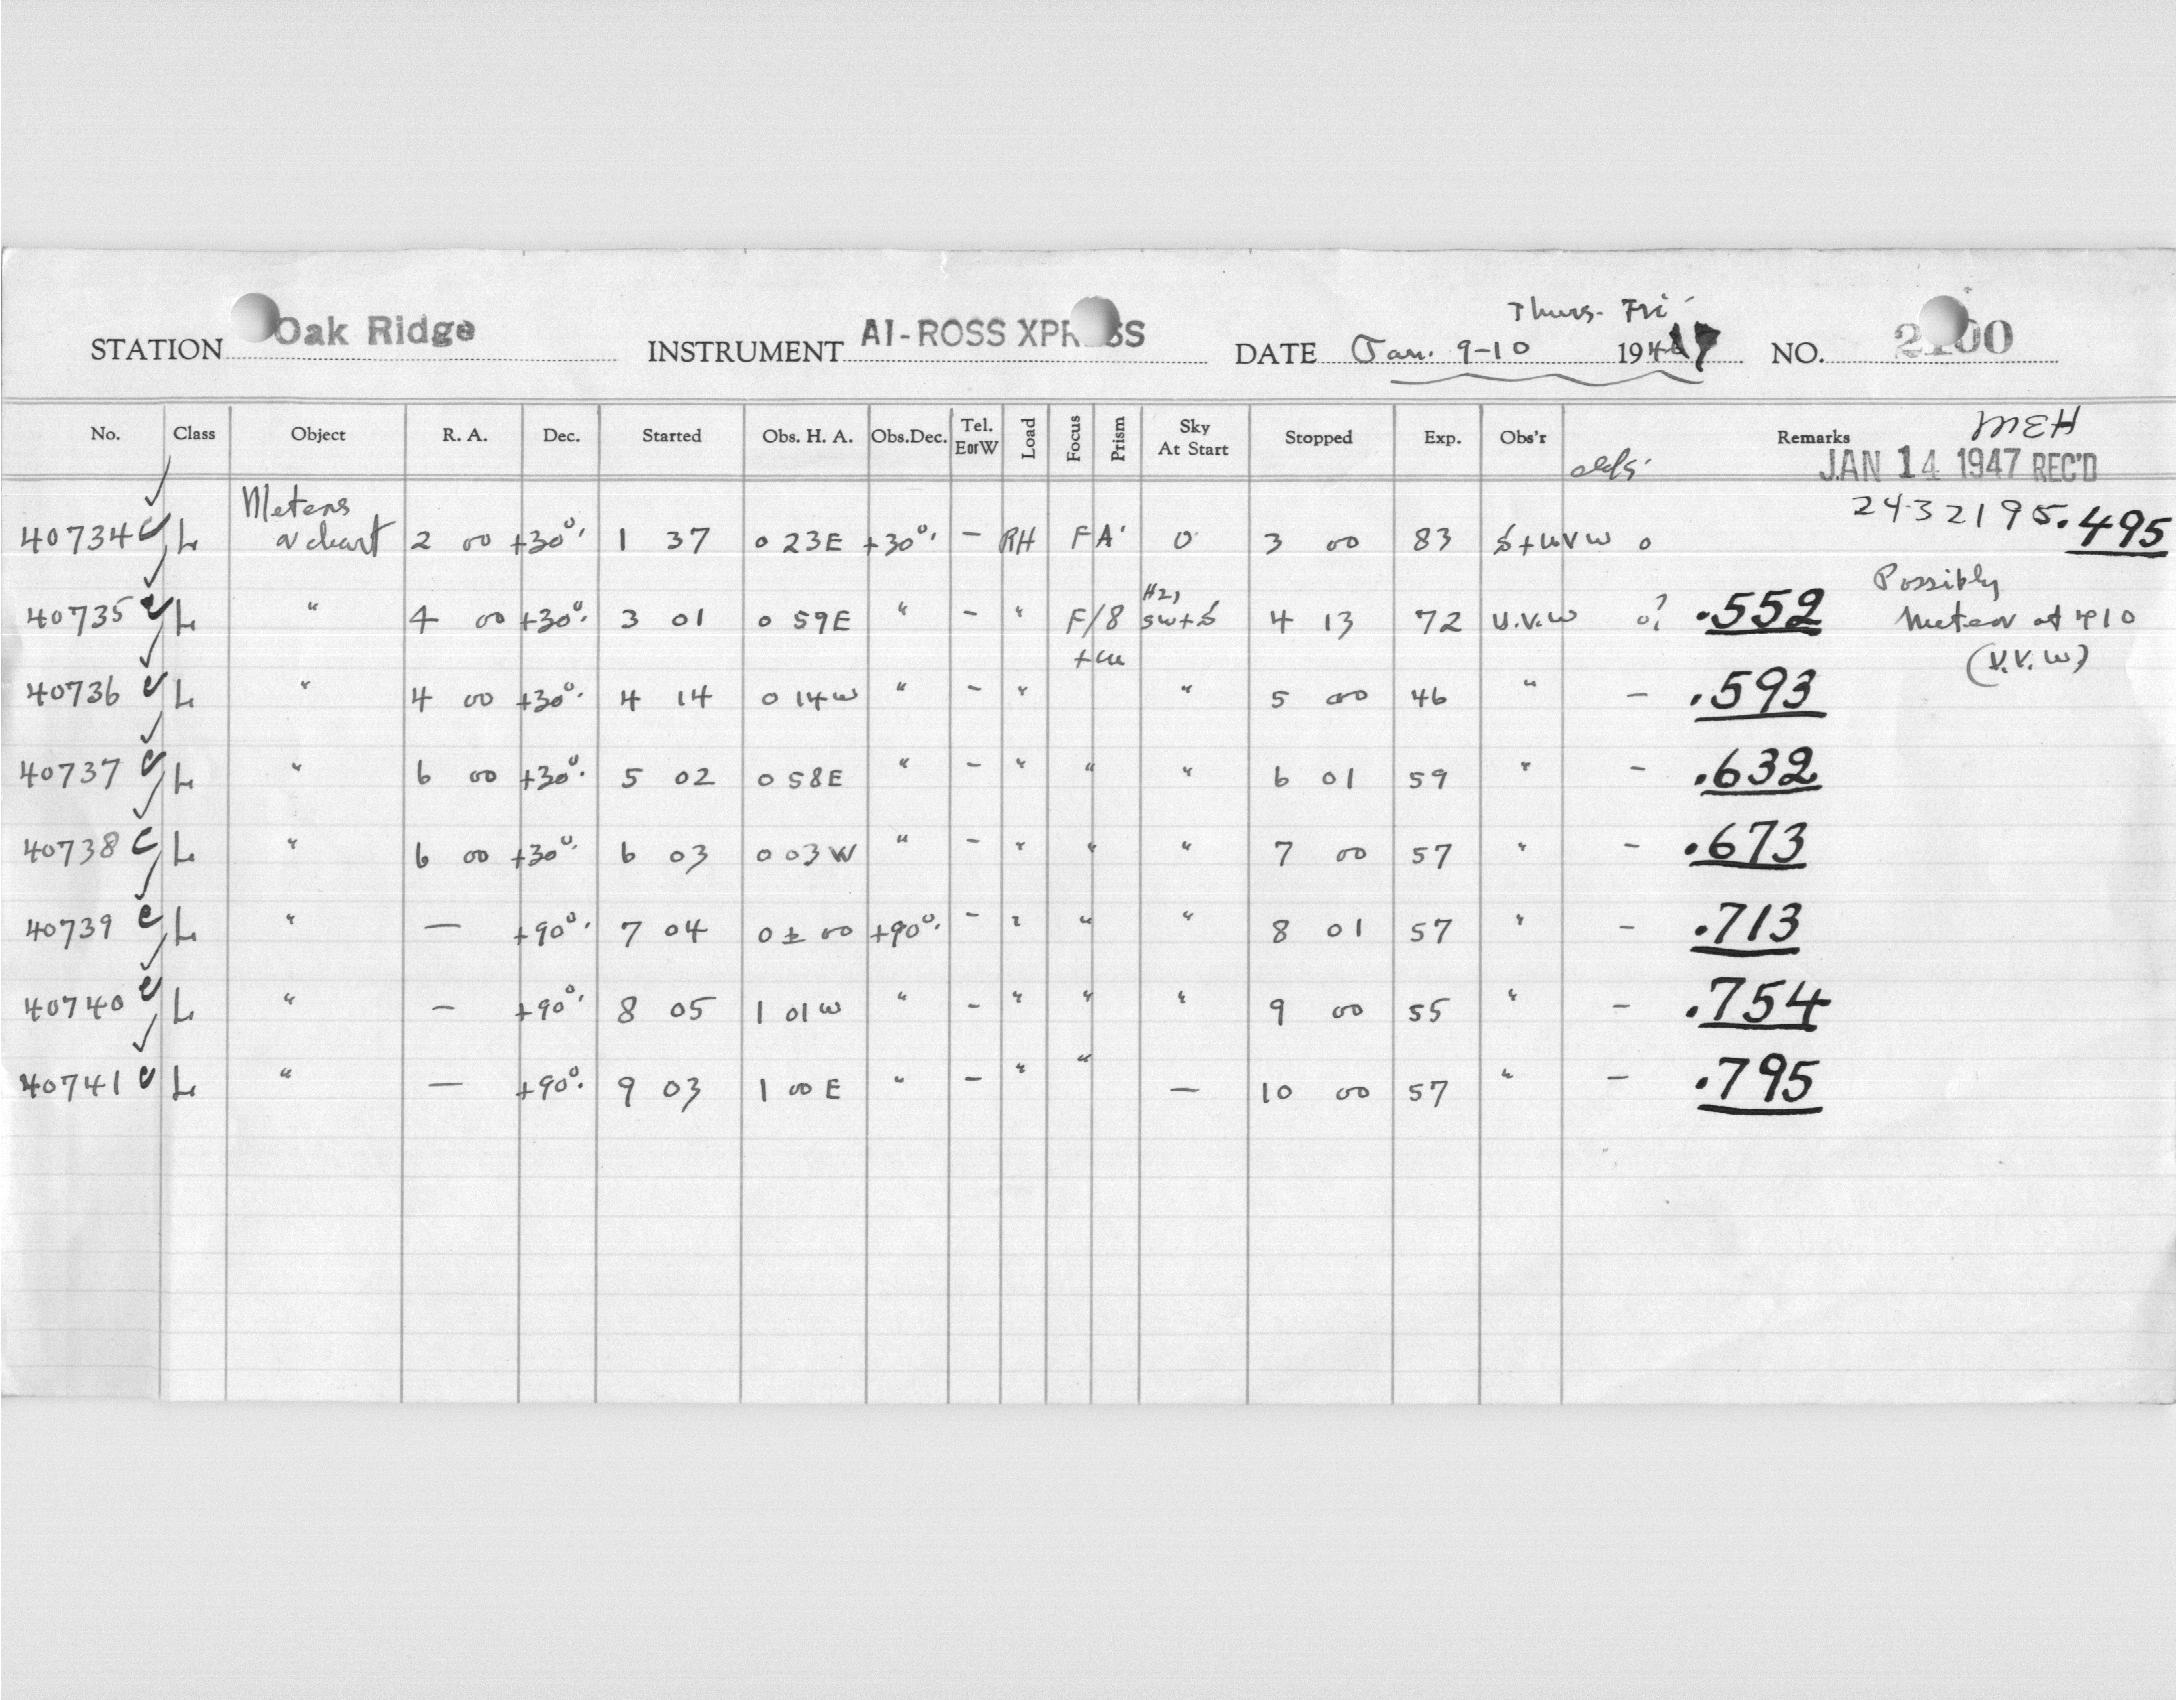 Thurs. Fri
STATION Oak Ridge INSTRUMENT AI-ROSS XPR SS DATE Jan. 9-10 1947 NO. 2 00
MEH
No. Class Object R. A. Dec. Started Obs. H. A. Obs.Dec. Tel. EorW Load Focus Prism Sky At Start Stopped Exp. Obs'r Remarks
JAN 14 1947 REC'D
40734 L Meteors 2 00 +30° 1 37 0 23E +30° - RH F A 0 3 00 83 0 2432195.495
40735 L " 4 00 +30° 3 01 0 59E " - " F/8 Hz, SW+S 4 13 72 V.V.W 0? .552 Possibly Meteor at 410 (V.V.W)
40736 L " 4 00 +30° 4 14 0 14W " - " " 5 00 46 " - .593
40737 L " 6 00 +30° 5 02 0 58E " - " " " 6 01 59 " - .632
40738 L " 6 00 +30° 6 03 0 03W " - " " " 7 00 57 " - .673
40739 L " — +90° 7 04 0 ± 00 +90° - " " " 8 01 57 " - .713
40740 L " — +90° 8 05 1 01W " - " " " 9 00 55 " - .754
40741 L " — +90° 9 03 1 00 E " - " " — 10 00 57 " - .795